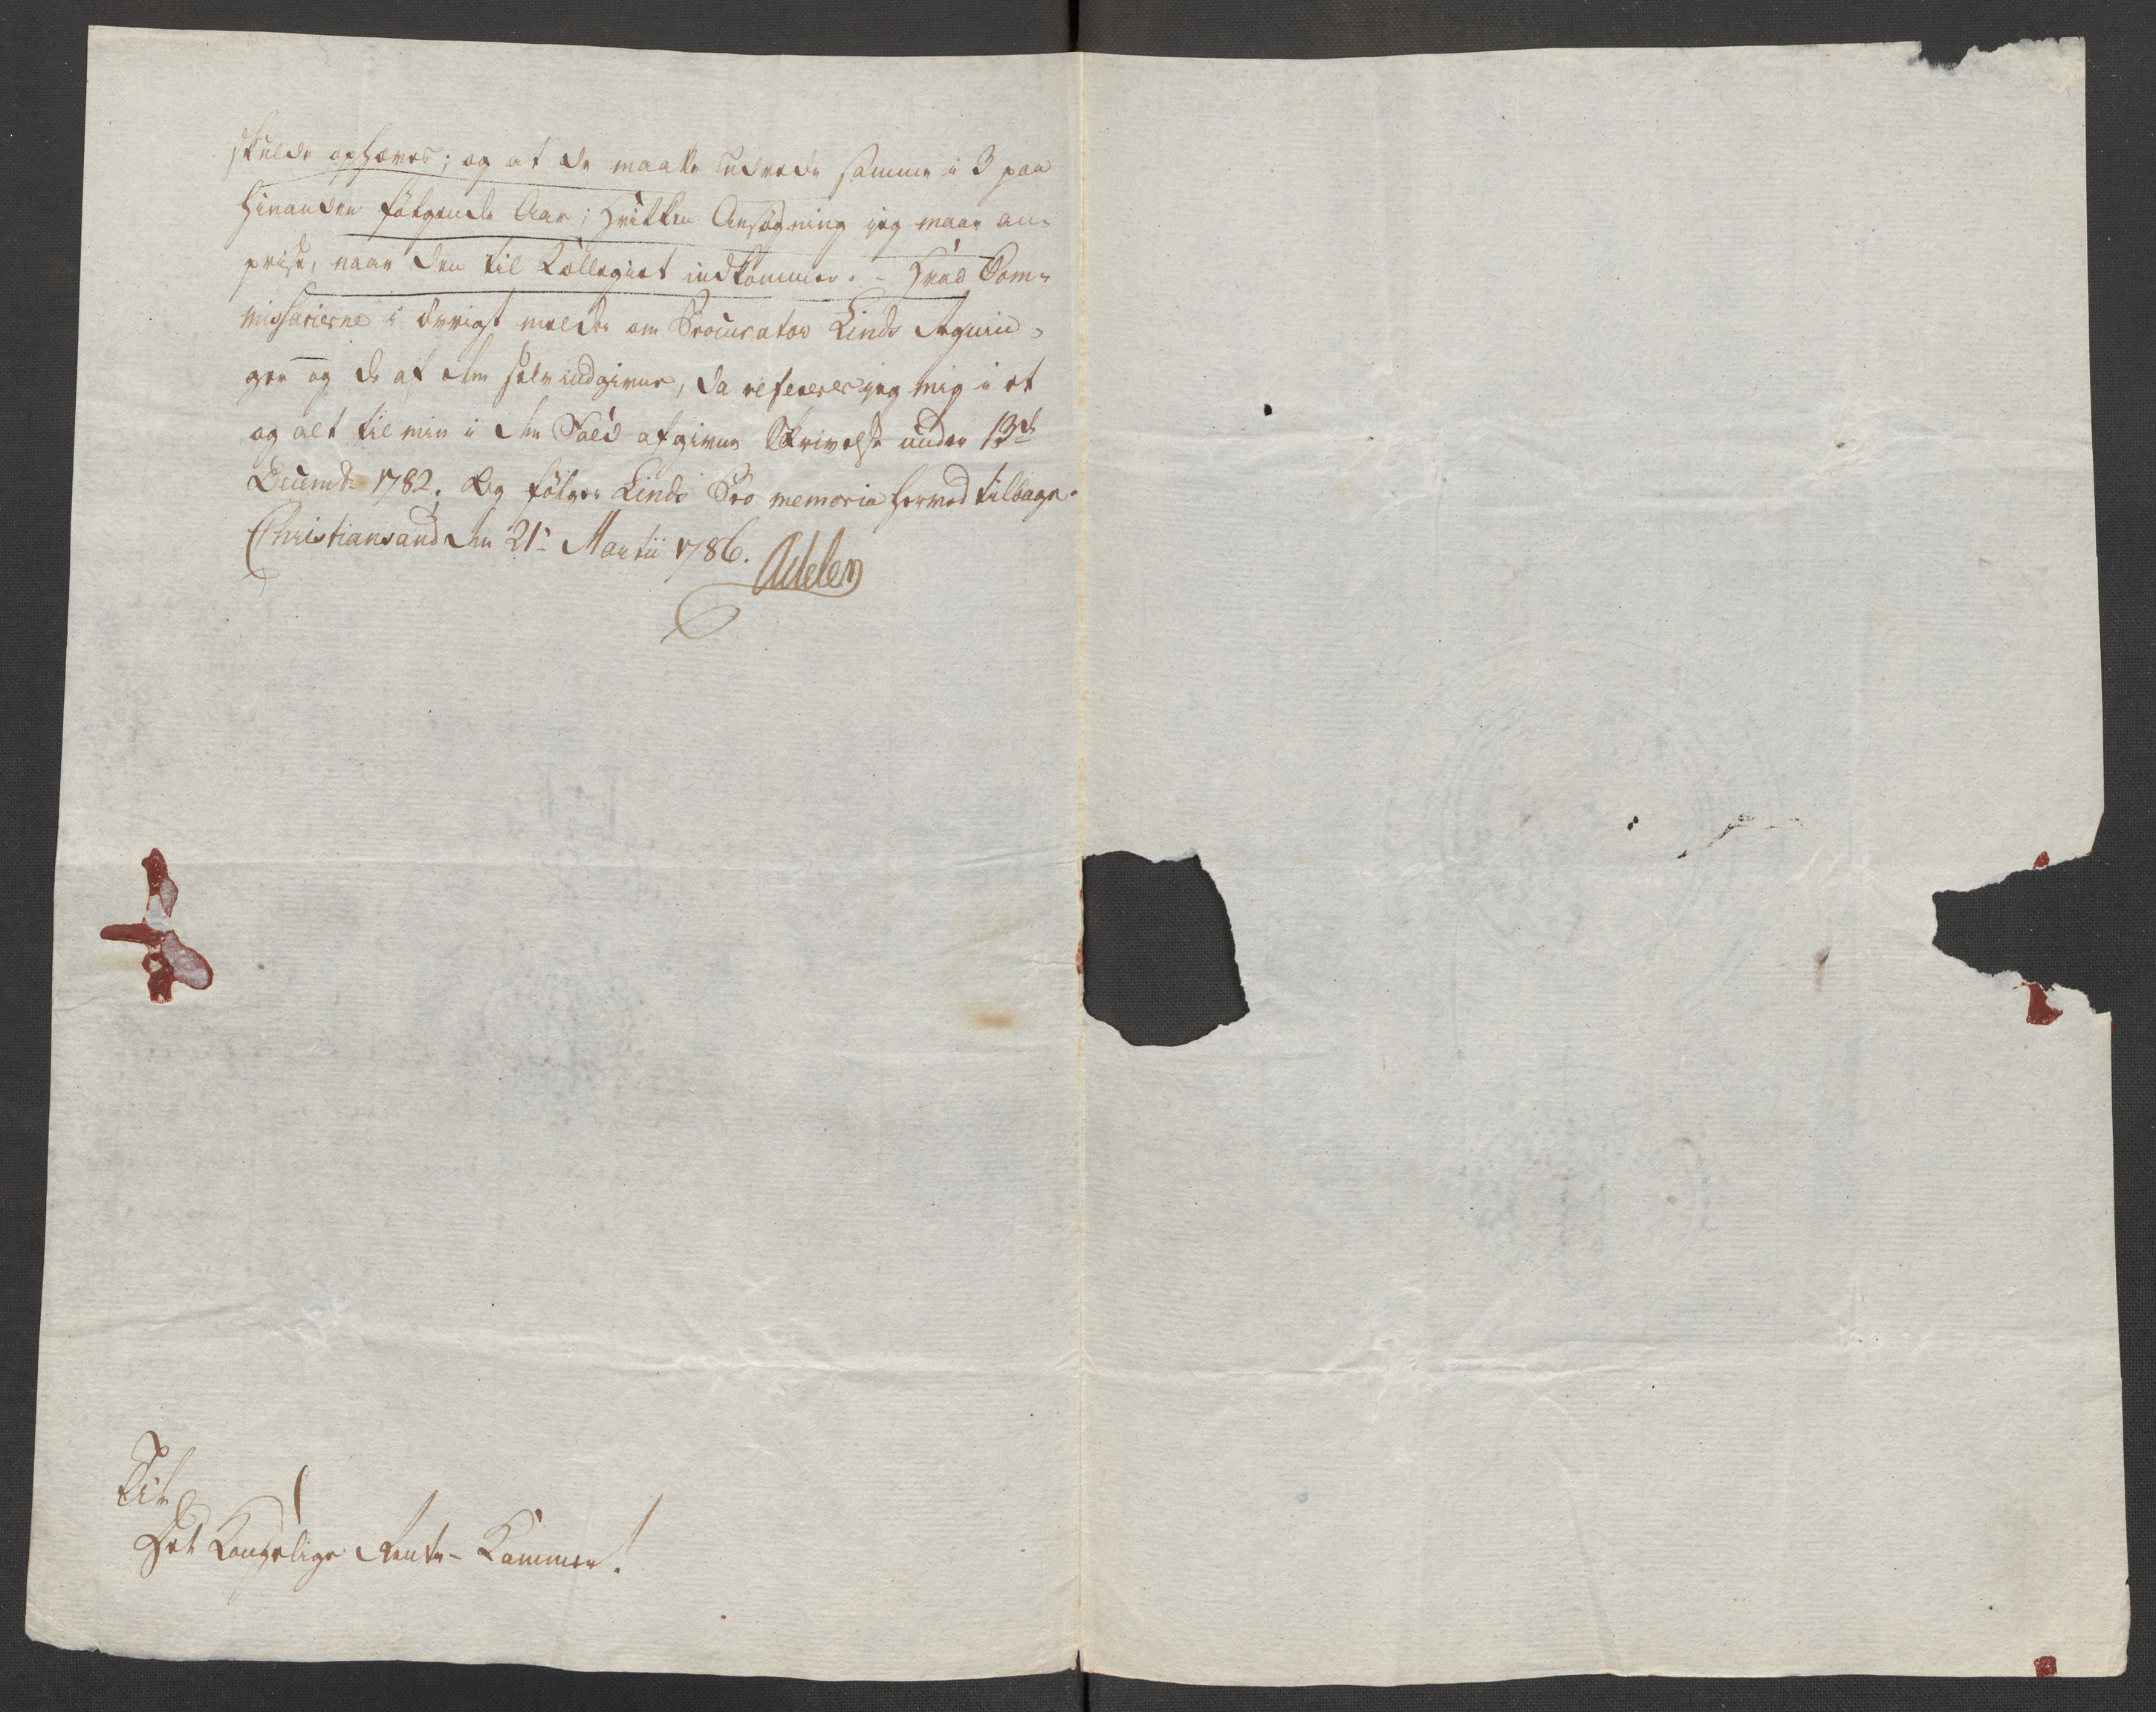 skulde ophæves; og at de maatte udrede samme i 3 paa
hinanden følgende Aar; hvilken Ansøgning jeg maae an-
prise, naar den til Kollegiet indkommer. - Hvad Com-
missarierne i øvrigt melder om Procurator Linds Regnin-
ger og de af dem selv indgivne, da refererer jeg mig i et
og alt til min i den Sald afgivne Skrivelse under 13de
Decembr 1782. Og følger Linds Pro memoria hermed tilbage.
Christiansand den 21de Martii 1786. Adeler
Til
Det Kongelige Rente-Kammer!